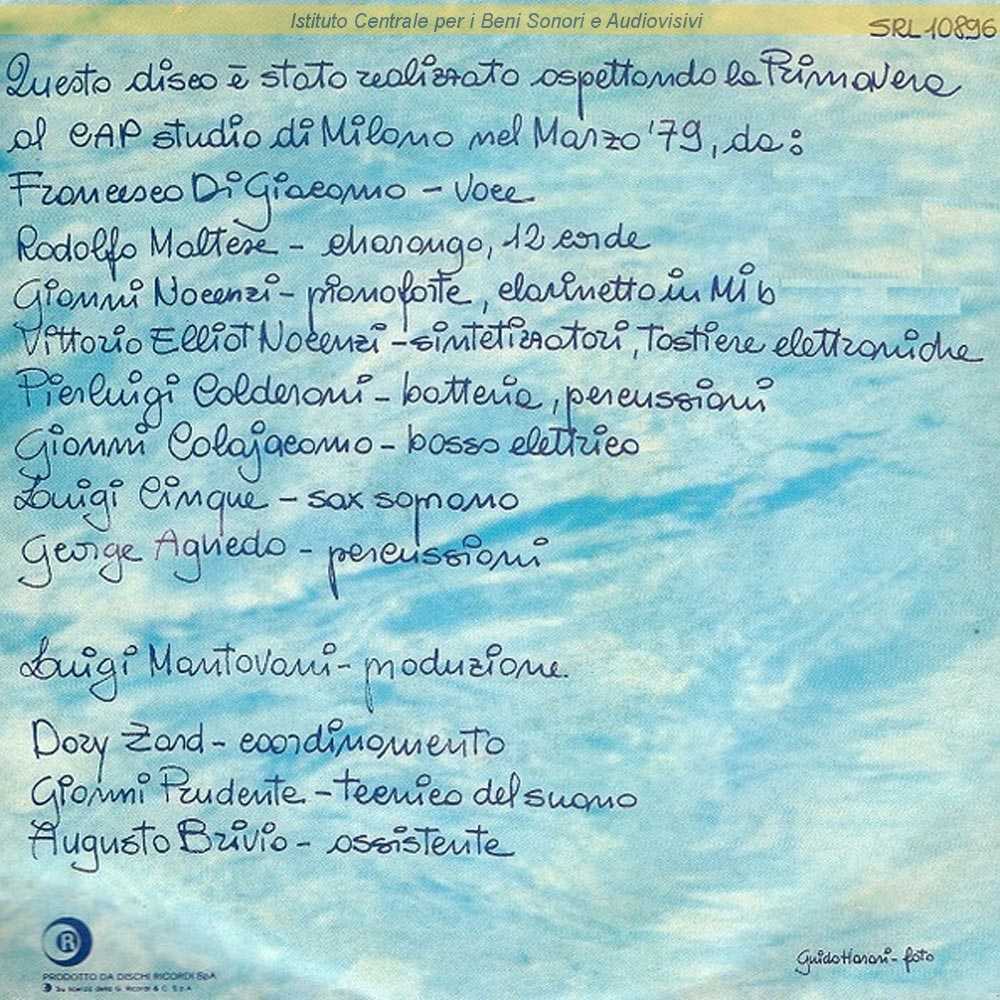 Istituto Centrale per i Beni Sonori e Audiovisivi
SRL 10896
Questo disco è stato realizzato aspettando la Primavera
al CAP studio di Milano nel Marzo '79, da:
Francesco Di Giacomo - voce
Rodolfo Maltese - charango, 12 corde
Gianni Nocenzi - pianoforte, clarinetto in Mi b
Vittorio Elliot Nocenzi - sintetizzatori, tastiere elettroniche
Pierluigi Calderoni - batteria, percussioni
Gianni Colajacomo - basso elettrico
Luigi Cinque - sax soprano
George Aghedo - percussioni
Luigi Mantovani - produzione.
Dory Zard - coordinamento
Gianni Prudente - tecnico del suono
Augusto Brivio - assistente
R
PRODOTTO DA DISCHI RICORDI SpA
Su licenza della G. Ricordi & C. S.p.A.
Guido Harari - foto